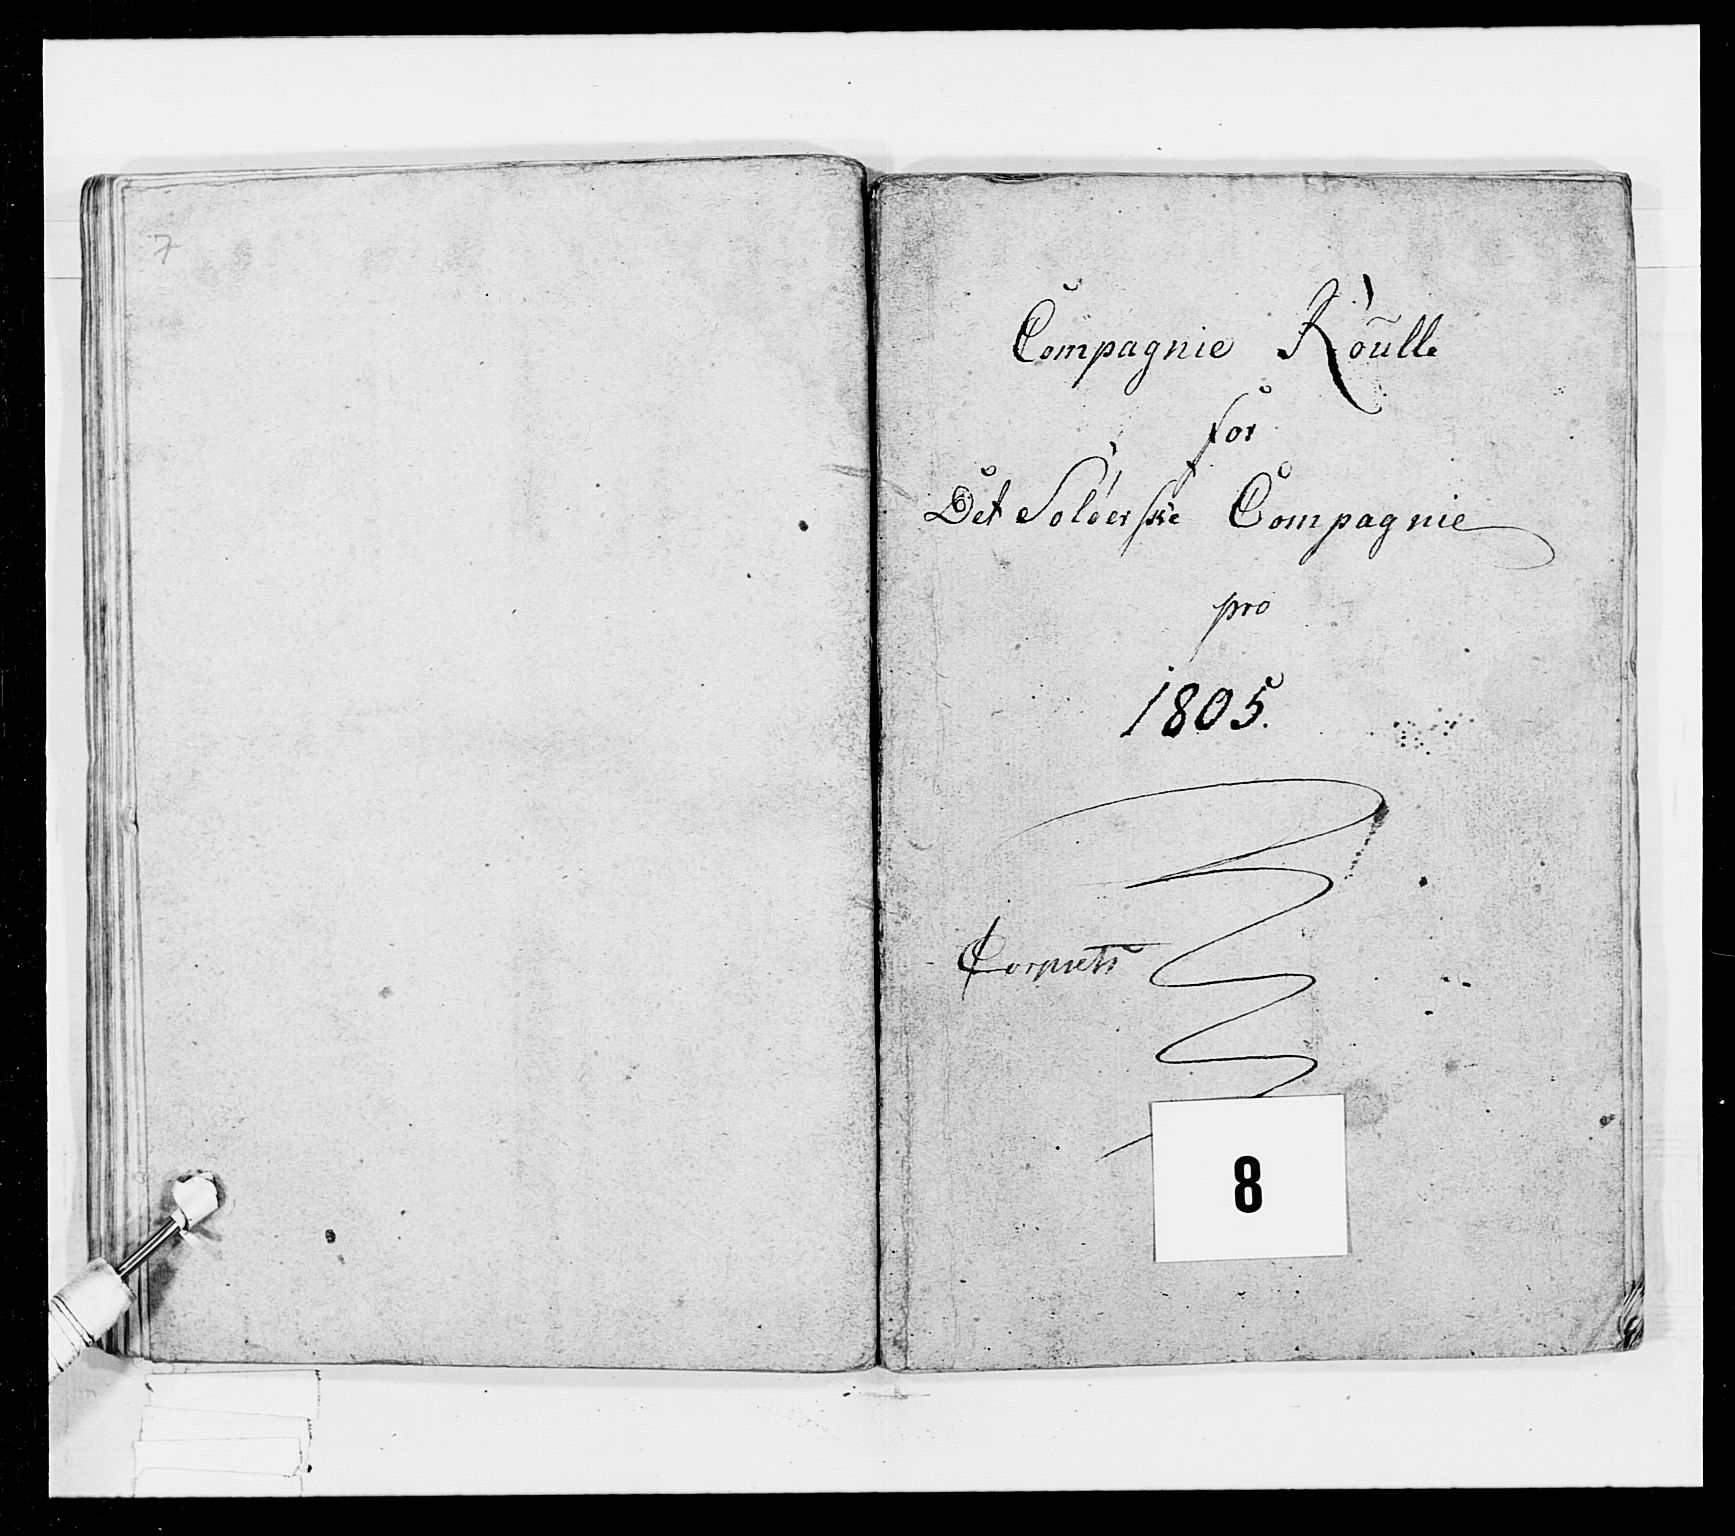 7
Compagnie Roulle
for
Det Soløerske Compagnie
pro
1805.
Corpsets
8